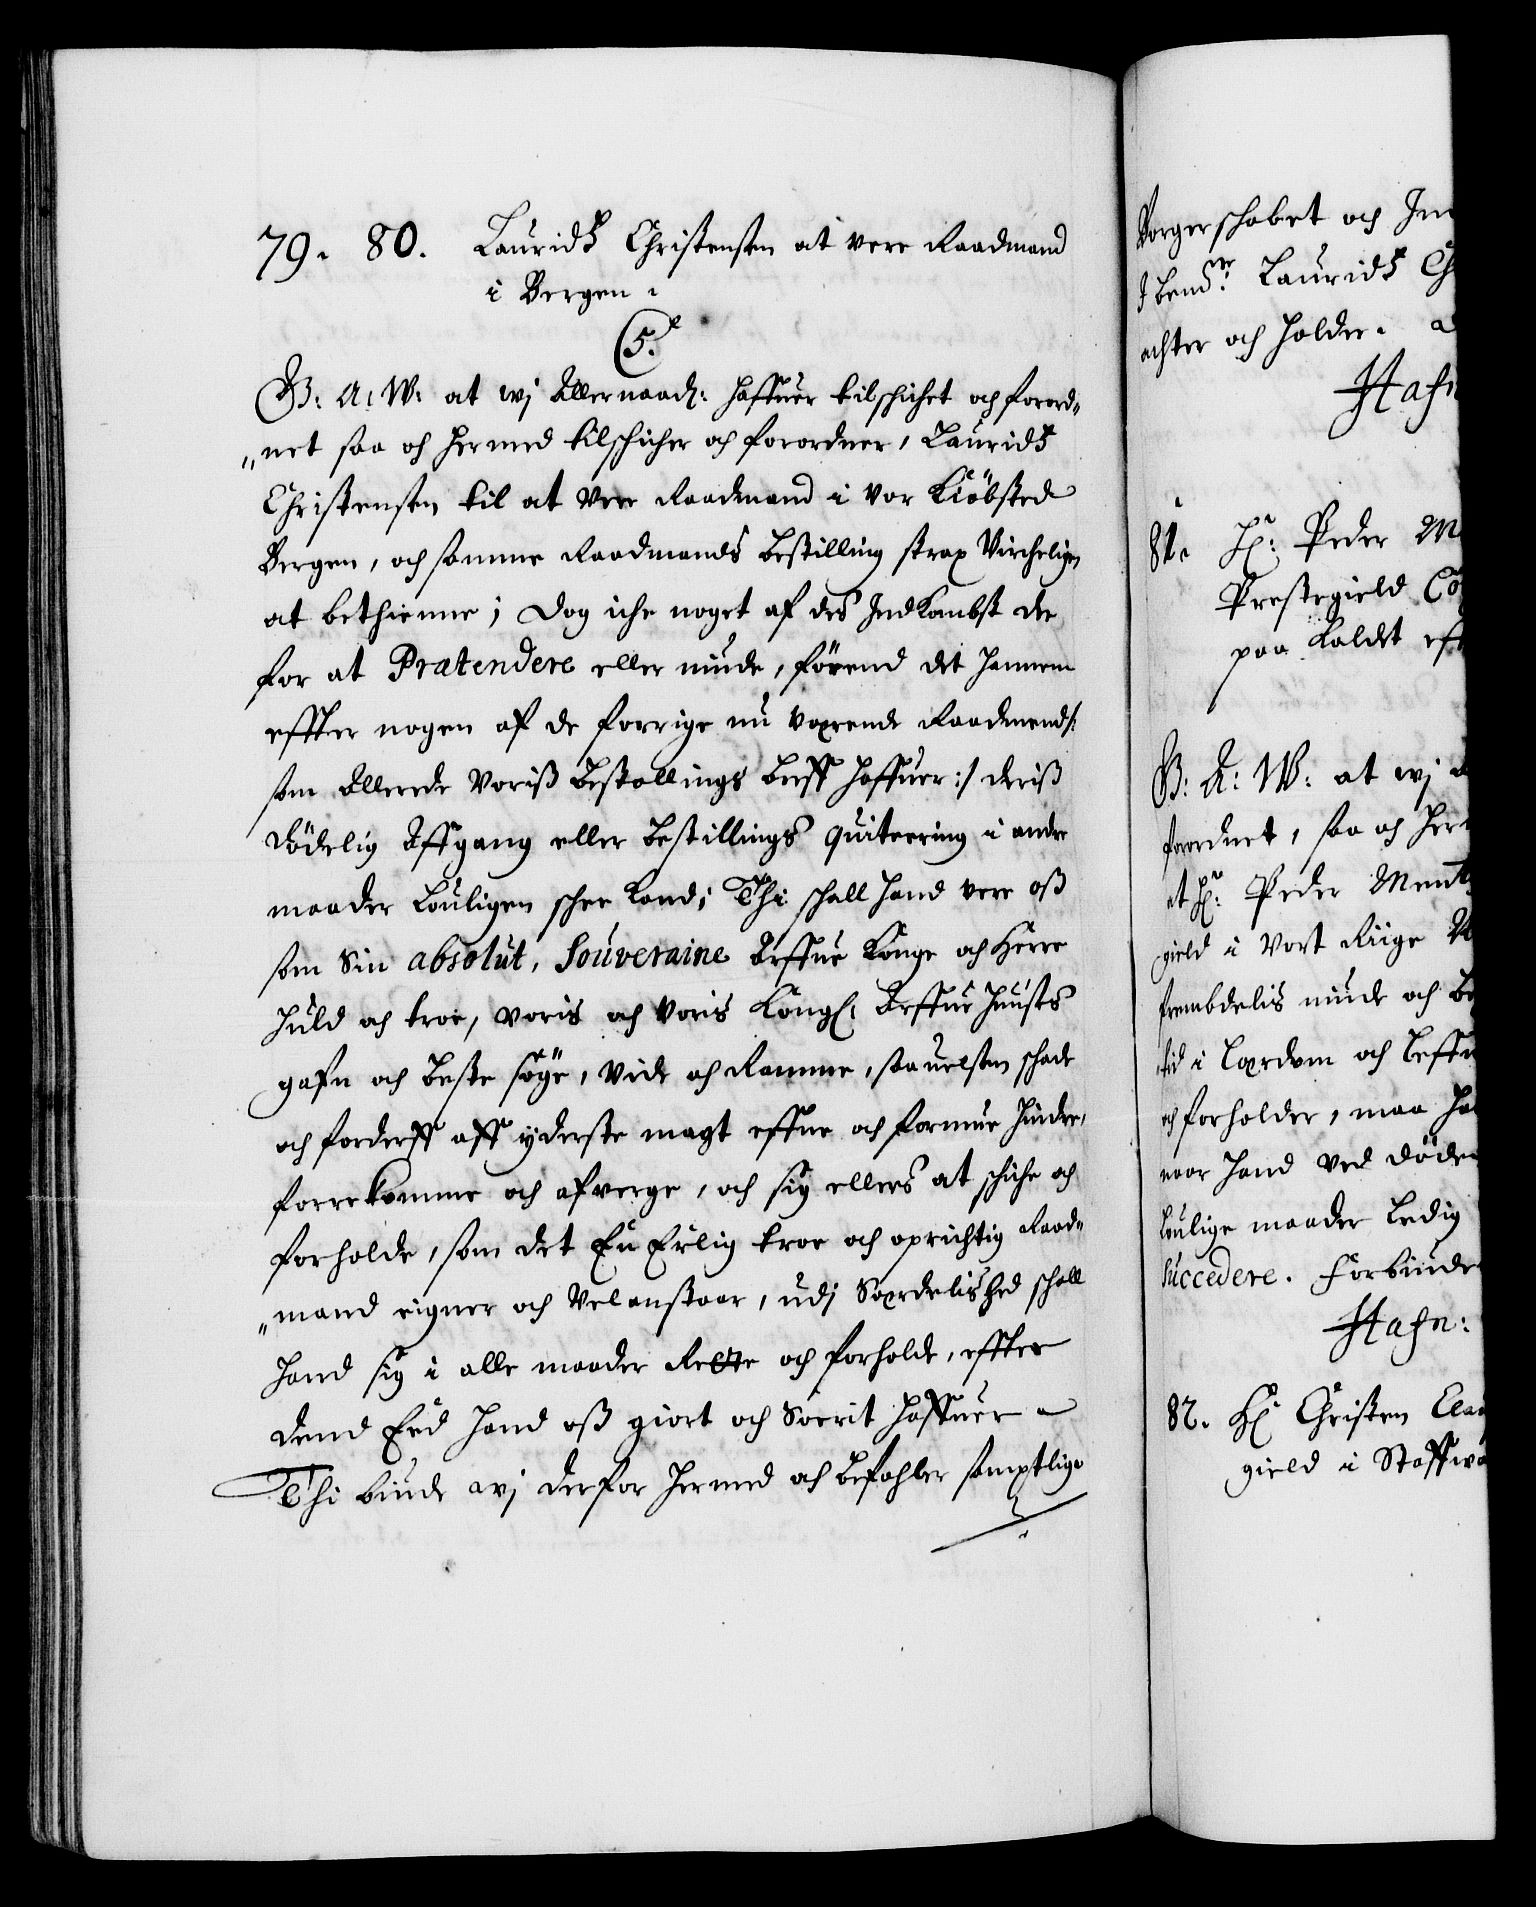 79. 80. Lauridtz Christensen at vere Raadmand
i Bergen.
5.
G: A: W: at wj Allernaad: haffuer tilschichet och forord„
„net saa och hermed tilschicher och forordner, Lauridtz
Christensen til at vere Raadmand i vor Kiöbsted
Bergen, och samme Raadmands bestilling strax Virchelige
at bethienne; dog iche noget af des Indkombst der
for at Prætendere eller niude, förend det hannem
effter nogen af de forrige nu værende Raadmend/:
som Allerede Voriß bestallings breff haffuer:/ deriß
dödelig Affgang eller bestillings quitering i andre
maader louligen schee kand; Thi schall hand vere oß
som Sin absolut, Souveraine Arffue Konge och Herre
huld och troe, voris och Voris Kongl: Arffue Huusts
gafn och beste söge, vide och Ramme, saauelsom schade
och forderff aff yderste magt effne och formue hindre,
forrekomme och afverge, och sig ellers at schiche och
forholde, som det En Erlig troe och oprichtig Raad„
„mand eigner och Velanstaar, udj Særdelished schall
hand sig i alle maader Rette och forholde, effter
dend Eed hand oß giort och Soerit haffuer
Thi biude wj derfor hermed och befahler samptlige
Borgerschabet och In
bemd.te Lauridtz Ch
achter och holder.
Hafn
81. Hr: Peder M
Prestegield
paa Kaldet eft
G: A: W: at wj
forordnet, saa och her
at Hr: Peder Ment
gield i Vort Riige
frembdelis niude och be
tid i Lærdom och leffn
och forholder, maa ha
naar hand ved döde
loulige maader ledig
succedere. Forbinde
Hafn:
82. Hr Christen Clau
gield i Staff